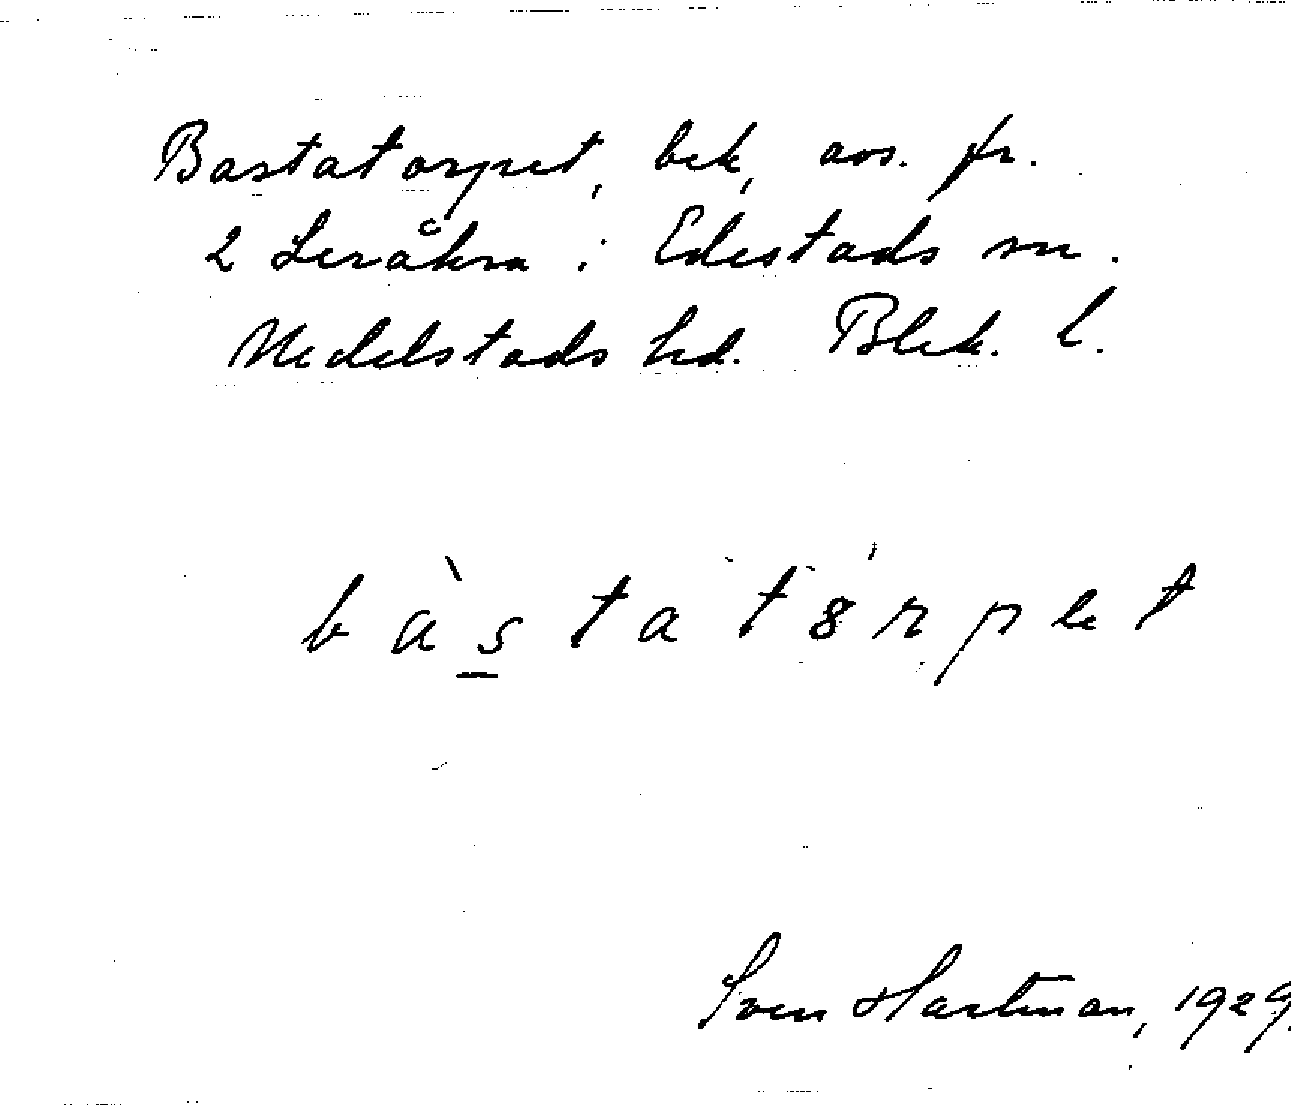 Bastatorpet, bek, avs. fr.
2 Leråkra i Edestads sn.
Medelstads hd. Blek. l.
bàstatørpet
Sven Hartman, 1929.